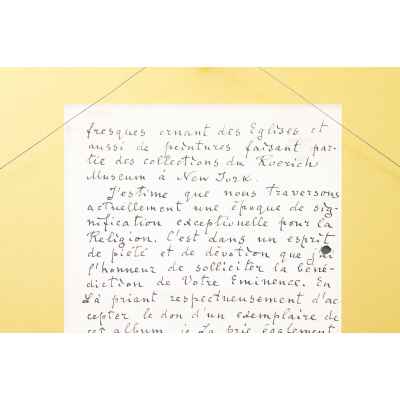 fresques ornant des Eglises et
aussi de peintures faisant par-
tie des collections du Roerich
Museum à New York.
J'estime que nous traversons
actuellement une époque de sig-
nification exceptionelle pour la
Religion. C'est dans un esprit
de piété et de dévotion que j'ai
l'honneur de solliciter la béné-
diction de Votre Eminence. En
La priant respectueusement d'ac
cepter le don d'un exemplaire de
cet album, je La prie également